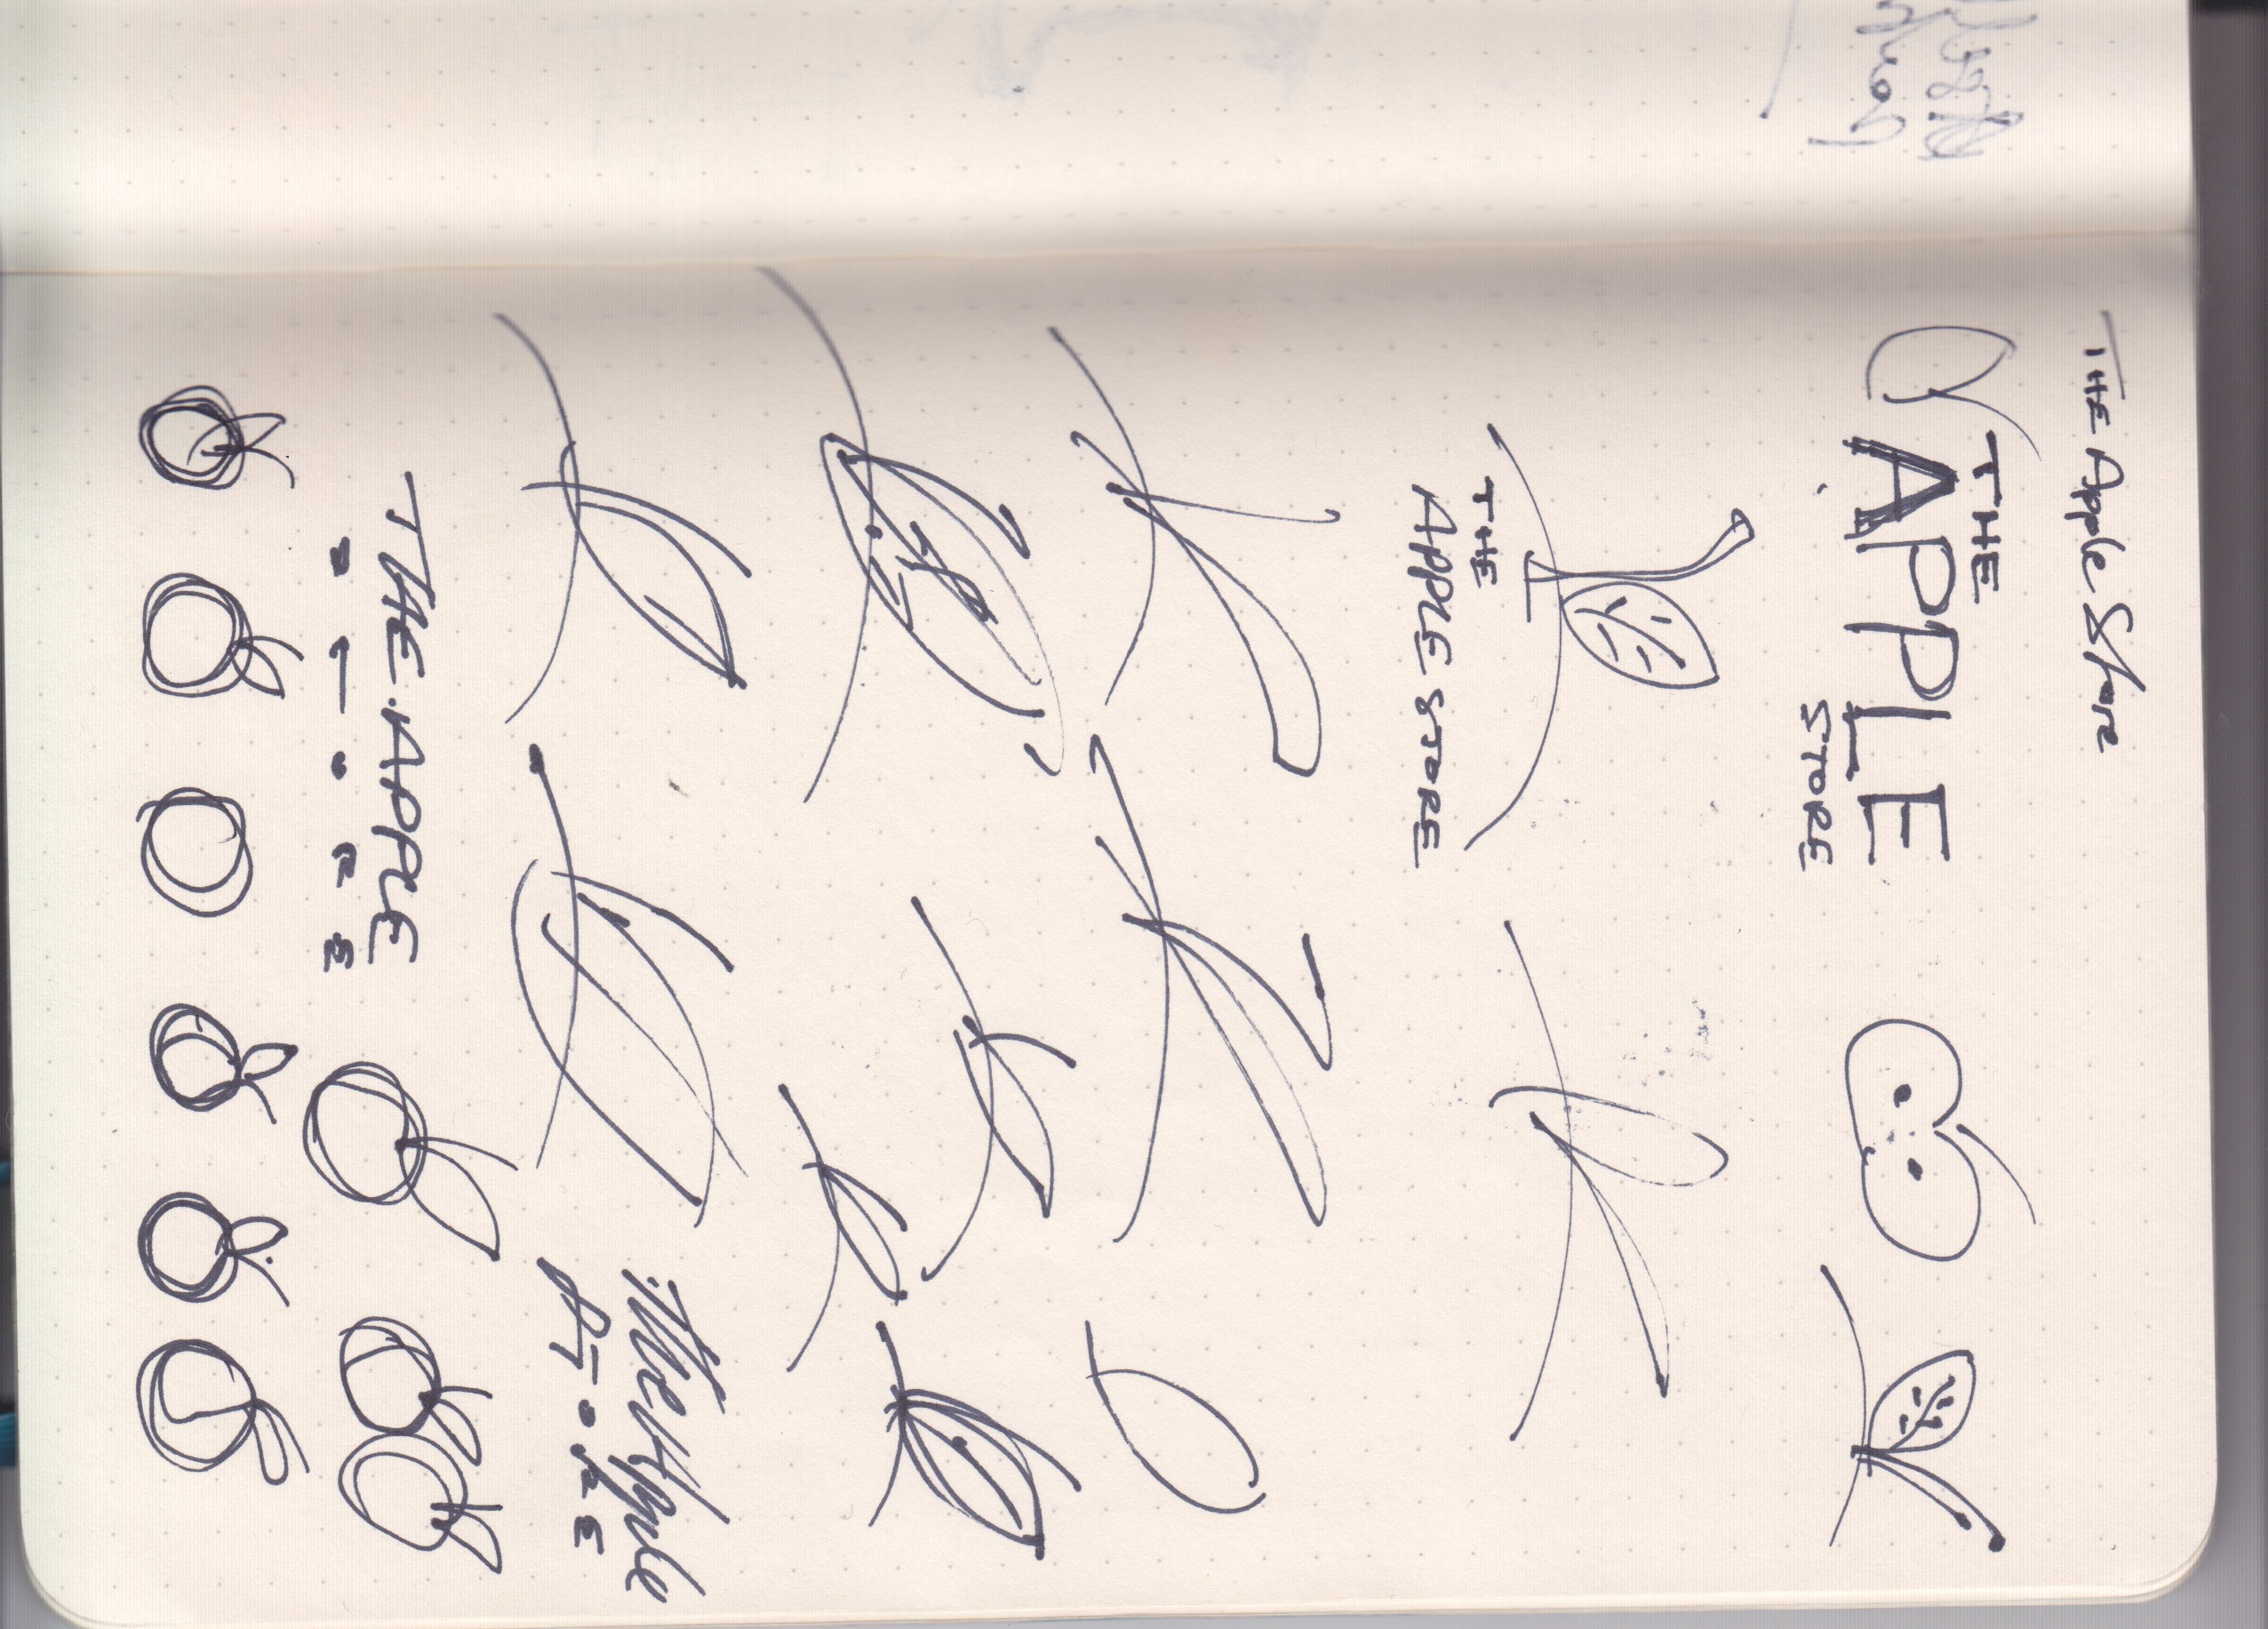 THE Apple Store
THE
APPLE
STORE
THE
APPLE STORE
The Apple
STORE
THE APPLE
STORE